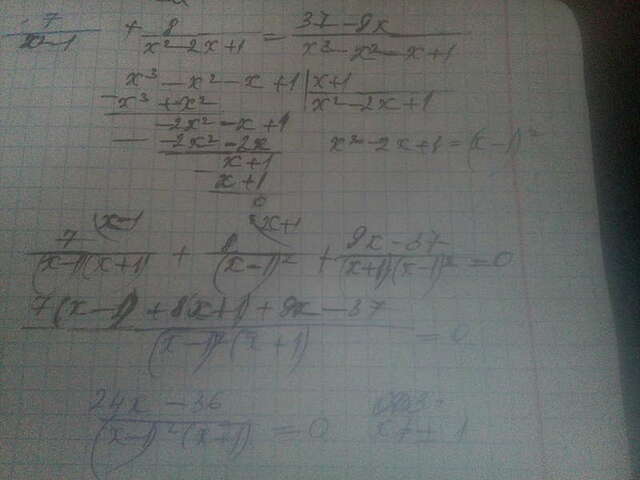 7/(x²-1) + 8/(x²-2x+1) = (37-9x)/(x³-x²-x+1)
x³-x²-x+1 | x+1
- x³+x² | x²-2x+1
-2x²-x+1
- -2x²-2x x²-2x+1=(x-1)²
x+1
- x+1
0
x-1 x+1
7/((x-1)(x+1)) + 8/(x-1)² + (9x-37)/((x+1)(x-1)²) = 0
(7(x-1)+8(x+1)+9x-37)/((x-1)²(x+1)) = 0
(24x-36)/((x-1)²(x+1)) = 0